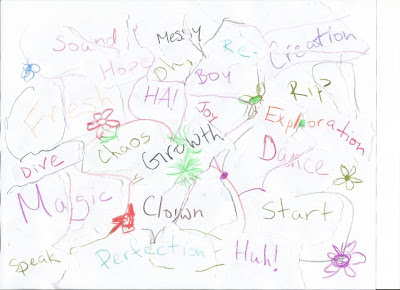 Messy
Sound
Re-Creation
Hope
Oh,
Boy
HA!
Rip
Fresh
Joy
Exploration
Chaos
Growth
Dance
Dive
Magic
Clown
Start
Speak
Perfection
Huh!